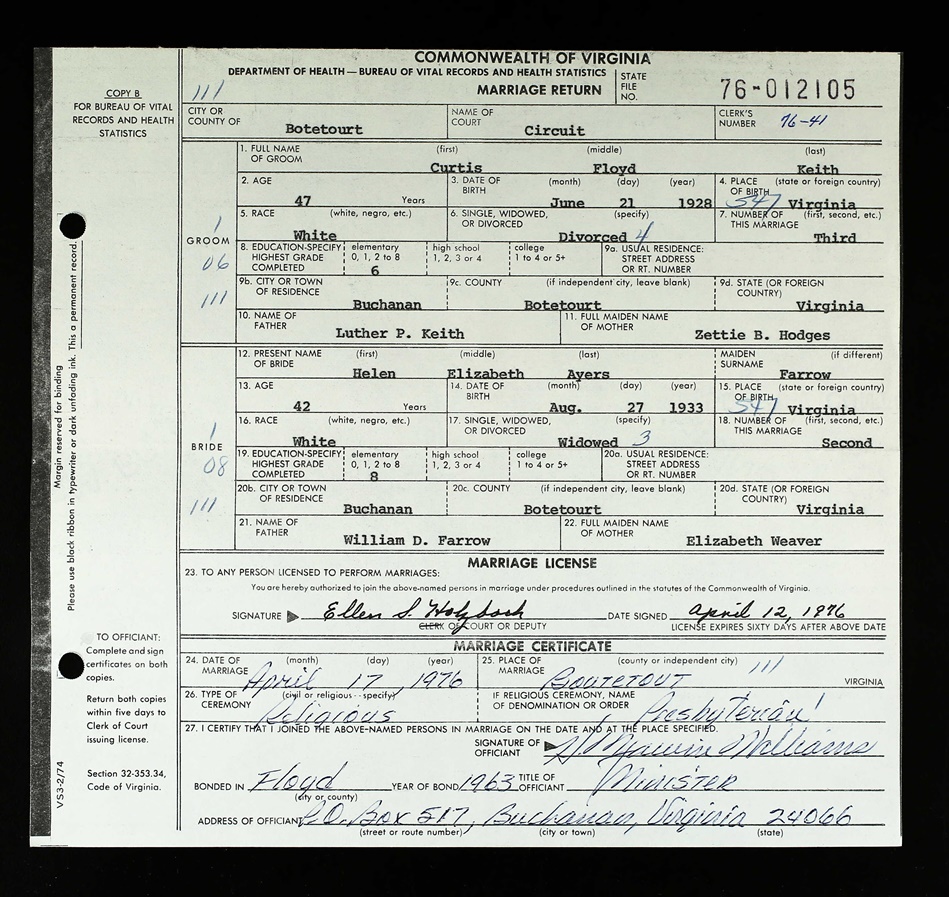 COMMONWEALTH OF VIRGINIA
DEPARTMENT OF HEALTH — BUREAU OF VITAL RECORDS AND HEALTH STATISTICS
MARRIAGE RETURN
STATE FILE NO. 76-012105
COPY B
FOR BUREAU OF VITAL
RECORDS AND HEALTH
STATISTICS
111
CITY OR COUNTY OF Botetourt
NAME OF COURT Circuit
CLERK'S NUMBER 76-41
GROOM
1
06
111
1. FULL NAME OF GROOM (first) Curtis (middle) Floyd (last) Keith
2. AGE 47 Years
3. DATE OF BIRTH (month) June (day) 21 (year) 1928
4. PLACE OF BIRTH (state or foreign country) 547 Virginia
5. RACE (white, negro, etc.) White
6. SINGLE, WIDOWED, OR DIVORCED (specify) Divorced 4
7. NUMBER OF THIS MARRIAGE (first, second, etc.) Third
8. EDUCATION-SPECIFY HIGHEST GRADE COMPLETED elementary 0, 1, 2 to 8 6 high school 1, 2, 3 or 4 college 1 to 4 or 5+
9a. USUAL RESIDENCE: STREET ADDRESS OR RT. NUMBER
9b. CITY OR TOWN OF RESIDENCE Buchanan
9c. COUNTY (if independent city, leave blank) Botetourt
9d. STATE (OR FOREIGN COUNTRY) Virginia
10. NAME OF FATHER Luther P. Keith
11. FULL MAIDEN NAME OF MOTHER Zettie B. Hodges
BRIDE
1
08
111
12. PRESENT NAME OF BRIDE (first) Helen (middle) Elizabeth (last) Ayers
MAIDEN SURNAME (if different) Farrow
13. AGE 42 Years
14. DATE OF BIRTH (month) Aug. (day) 27 (year) 1933
15. PLACE OF BIRTH (state or foreign country) 547 Virginia
16. RACE (white, negro, etc.) White
17. SINGLE, WIDOWED, OR DIVORCED (specify) Widowed 3
18. NUMBER OF THIS MARRIAGE (first, second, etc.) Second
19. EDUCATION-SPECIFY HIGHEST GRADE COMPLETED elementary 0, 1, 2 to 8 8 high school 1, 2, 3 or 4 college 1 to 4 or 5+
20a. USUAL RESIDENCE: STREET ADDRESS OR RT. NUMBER
20b. CITY OR TOWN OF RESIDENCE Buchanan
20c. COUNTY (if independent city, leave blank) Botetourt
20d. STATE (OR FOREIGN COUNTRY) Virginia
21. NAME OF FATHER William D. Farrow
22. FULL MAIDEN NAME OF MOTHER Elizabeth Weaver
MARRIAGE LICENSE
23. TO ANY PERSON LICENSED TO PERFORM MARRIAGES:
You are hereby authorized to join the above-named persons in marriage under procedures outlined in the statutes of the Commonwealth of Virginia.
SIGNATURE Ellen S. DATE SIGNED April 12, 1976
CLERK OF COURT OR DEPUTY LICENSE EXPIRES SIXTY DAYS AFTER ABOVE DATE
MARRIAGE CERTIFICATE
24. DATE OF MARRIAGE (month) April (day) 17 (year), 1976
25. PLACE OF MARRIAGE (county or independent city) Boutetout 111 VIRGINIA
26. TYPE OF CEREMONY (civil or religious--specify) Religious
IF RELIGIOUS CEREMONY, NAME OF DENOMINATION OR ORDER Presbyterian 1
27. I CERTIFY THAT I JOINED THE ABOVE-NAMED PERSONS IN MARRIAGE ON THE DATE AND AT THE PLACE SPECIFIED.
SIGNATURE OF OFFICIAL Williams
BONDED IN Floyd (city or county) YEAR OF BOND 1963 TITLE OF OFFICIAL Minister
ADDRESS OF OFFICIAL P.O. Box 517, Buchanan, Virginia 24066
(street or route number) (city or town) (state)
Margin reserved for binding
Please use black ribbon in typewriter or dark unfading ink. This a permanent record.
TO OFFICIAL:
Complete and sign
certificates on both
copies.
Return both copies
within five days to
Clerk of Court
issuing license.
Section 32-353.34,
Code of Virginia.
VS3-2/74